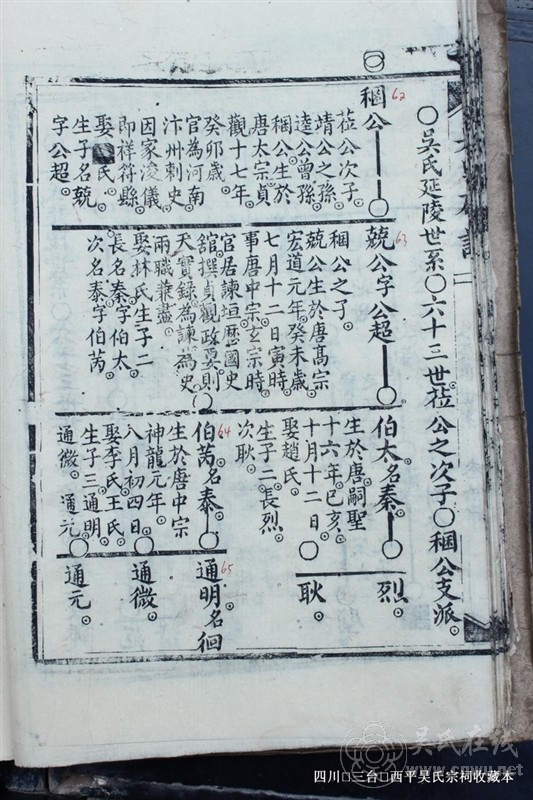 ○吳氏延陵世系○六十三世莅公之次子○稛公支派
62
稛公
莅公次子
靖公之孫
逵公曾孫
稛公生於
唐太宗貞
觀十七年
癸卯歲
官為河南
汴州刺史
因家浚儀
即祥符縣
娶 氏
生子名兢
字公超
63
兢公字公超
稛公之子
兢公生於唐高宗
宏道元年癸未歲
七月十二日寅時
事唐中宗玄宗時
官居諫垣歷國史
舘撰貞觀政要則
天實錄為諫為史
兩職兼盡
娶林氏生子二
長名秦字伯太
次名泰字伯芮
伯太名秦
生於唐嗣聖
十六年已亥
十月十二日
娶趙氏
生子二長烈
次耿
64
伯芮名泰
生於唐中宗
神龍元年
八月初四日
娶李氏王氏
生子三通明
通微 通元
烈
耿
65
通明名徊
通微
通元
吳氏在线
www.cnwu.net
四川□三台□西平吴氏宗祠收藏本